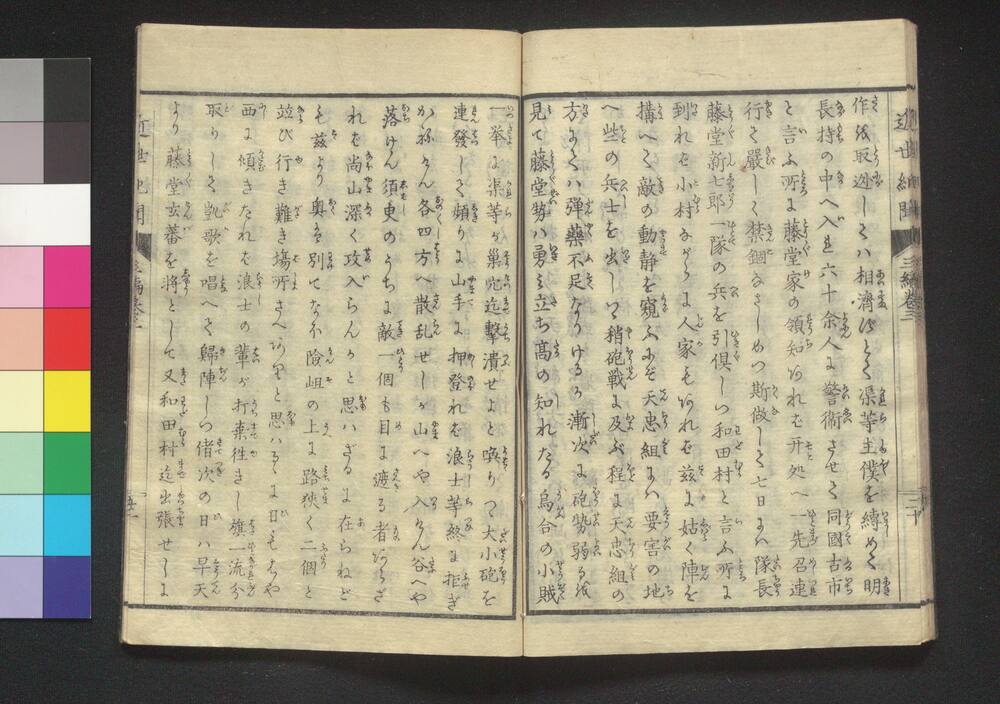 近世紀聞 三編巻三 二十
作を取迯してハ相濟ずとて渠等主僕を縛めて明
長持の中へ入れ六十余人に警衛させて同國古市
と言ふ所に藤堂家の領知なれバ其処へ一先召連
行き嚴しく禁錮なさしめつ斯做して七日にハ隊長
藤堂新七郎一隊の兵を引倶しつ和田村と言ふ所に
到れバ小村ながらに人家もあれバ茲に姑く陣を
搆へて敵の動静を窺ふ程に天忠組にハ要害の地
へ些の兵士を出しつゝ稍砲戦に及ぶ程に天忠組の
方にてハ弾藥不足なりけるか漸次に砲勢弱るを
見て藤堂勢ハ勇み立ち髙の知れたる烏合の小賊
一挙に渠等が巣穴迄撃潰せよと喚りつゝ大小砲を
連發して頻りに山手に押登れバ浪士等終に拒ぎ
かねけん各四方へ散乱せしが山へや入けん谷へや
落けん須臾のうちに敵一個も目に遮る者あらざ
れバ尚山深く攻入らんかと思ハざるに在らねど
も茲より奥ハ別てなほ險岨の上に路狹く二個と
竝び行き難き塲所さへ有りと思ハるゝに日もはや
西に傾きたれバ浪士の輩が打棄徃きし旗一流分
取りして凱歌を唱へて歸陣しつ偖次の日ハ早天
より藤堂玄蕃を將として又和田村迄出張せしに
近世紀聞